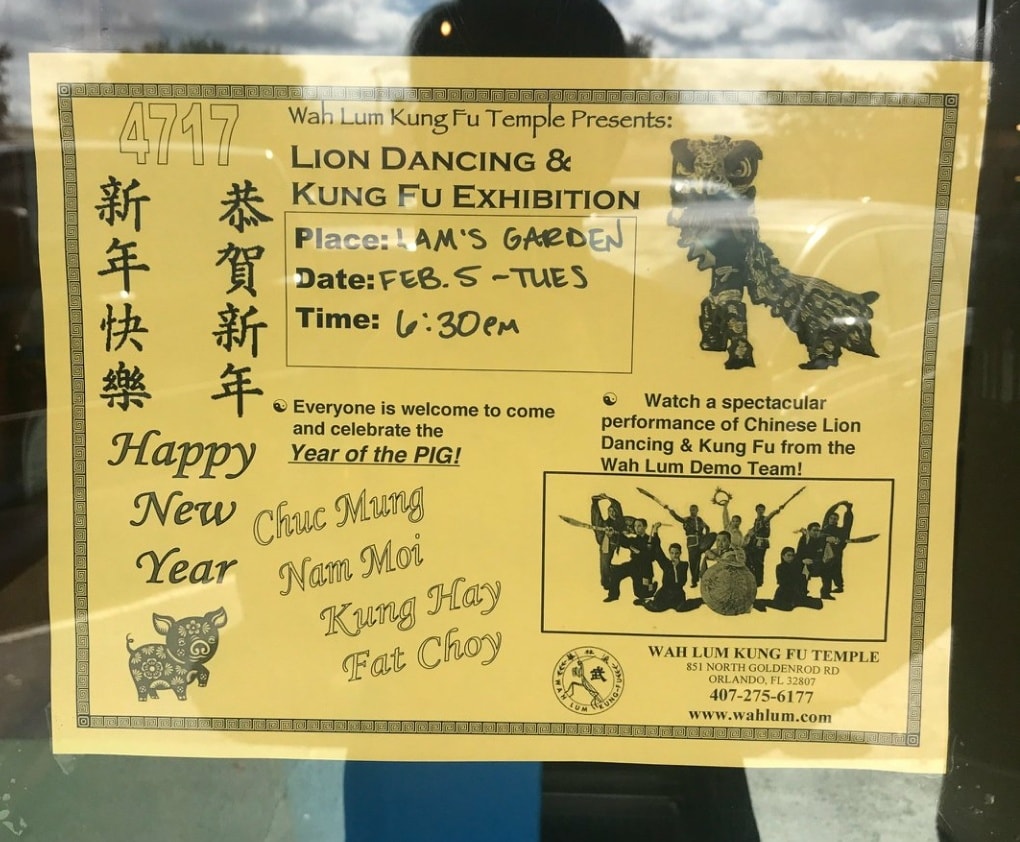 4717
新年快樂
恭賀新年
Happy
New
Year
Wah Lum Kung Fu Temple Presents:
LION DANCING &
KUNG FU EXHIBITION
Place: LAM'S GARDEN
Date: FEB. 5 - TUES
Time: 6:30PM
Everyone is welcome to come
and celebrate the
Year of the PIG!
Watch a spectacular
performance of Chinese Lion
Dancing & Kung Fu from the
Wah Lum Demo Team!
Chuc Mung
Nam Moi
Kung Hay
Fat Choy
WAH LUM KUNG FU
武
WAH LUM KUNG FU TEMPLE
851 NORTH GOLDENROD RD
ORLANDO, FL 32807
407-275-6177
www.wahlum.com